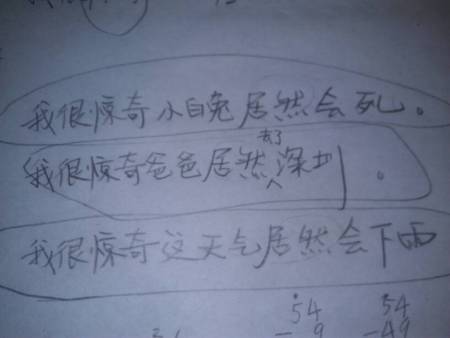 我很惊奇小白兔居然会死。
我很惊奇爸爸居然去了深圳。
我很惊奇这天气居然会下雨
54 54
-9 -49